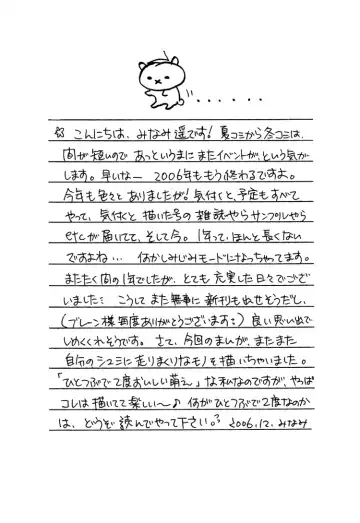 ・・・・・・
☆ こんにちは、みなみ遥です! 夏コミから冬コミは、
間が短いので あっというまに またイベントが、という気が
します。早いなー 2006年ももう終わるですよ。
今年も色々と ありましたが! 気付くと、予定もすべて
やって、気付くと 描いた号の 雑誌やら サンプルやら
etcが届いてて、そして今。1年って、ほんと長くない
ですよね… 何かしみじみモードになっちゃってます。
またたく間の1年でしたが、とても 充実した日々でござ
いました: こうして また無事に 新刊も出せそうだし、
(ブレーン様毎度ありがとうございます:) 良い思い出で
しめくくれそうです。さて、今回のまんが、またまた
自分のシュミに走りまくりなモノを描いちゃいました。
「ひとつぶで2度おいしい萌え」な私なのですが、やっぱ
コレは描いてて楽しい〜♪ 何がひとつぶで2度なのか
は、どうぞ読んでやって下さい。 2006.12. みなみ